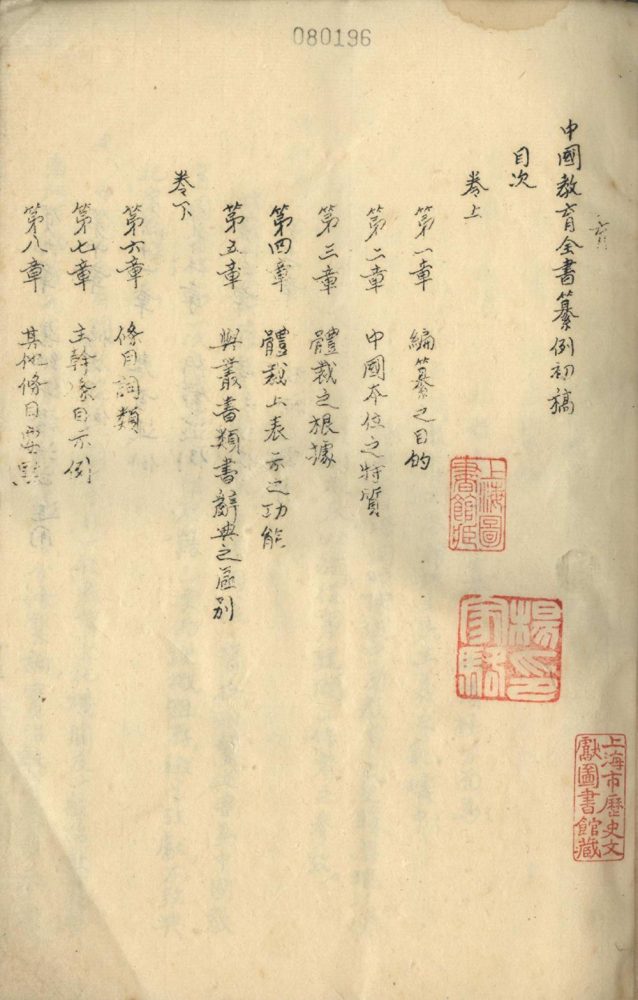 080196
中國教育全書纂例初稿
目次
卷上
第一章 編纂之目的
第二章 中國本位之特質
第三章 體裁之根據
第四章 體裁上表示之功能
第五章 與叢書類書辭典之區別
卷下
第六章 條目詞類
第七章 主幹條目示例
第八章 其他條目要點
上海圖書館藏
楊家駱印
上海市歷史文獻圖書館藏